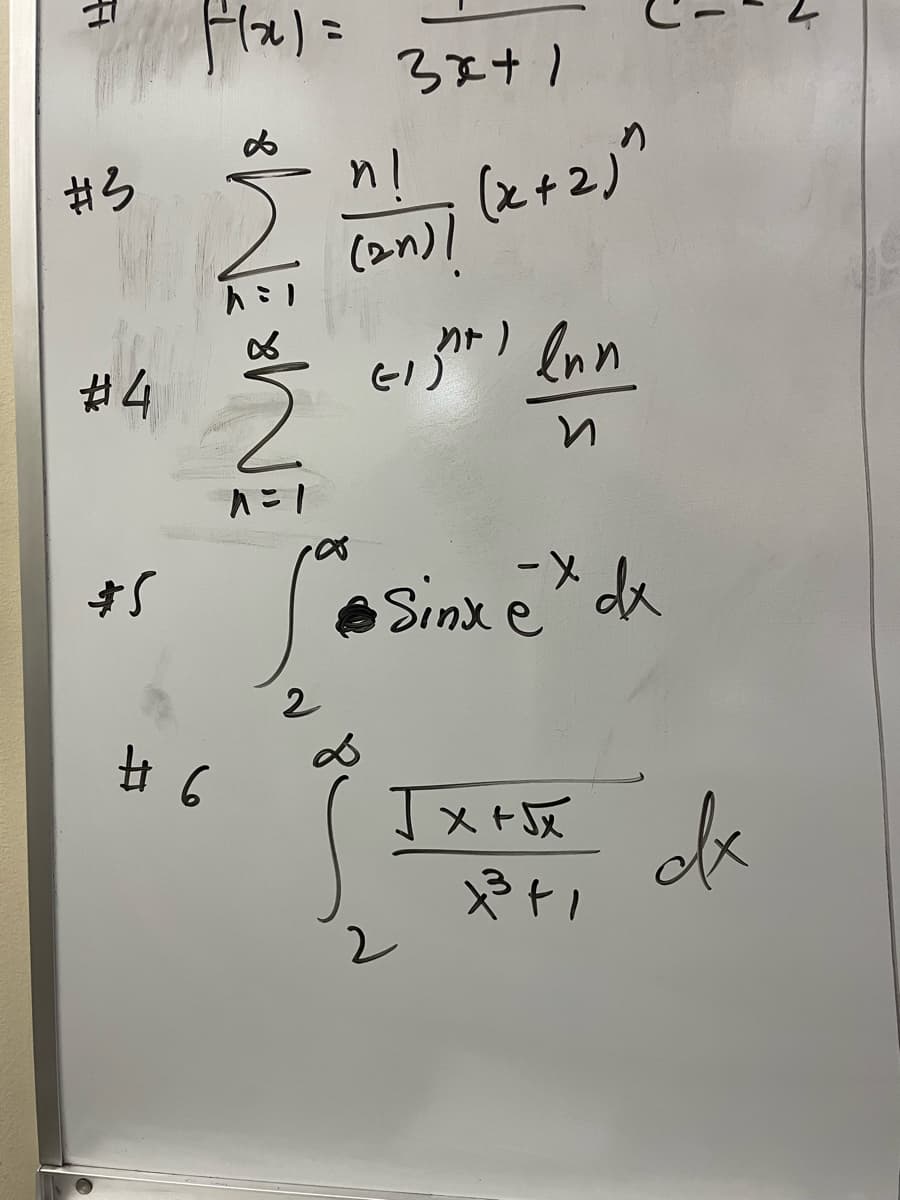 # f(x) =
3x + 1
#3 ∞ Σ n=1 n!/(2n)! (x+2)^n
#4 ∞ Σ n=1 (-1)^n+1 ln n/n
#5 ∫ 2 ∞ Sinx e^-x dx
#6 ∫ 2 ∞ √x+√x/x^3+1 dx